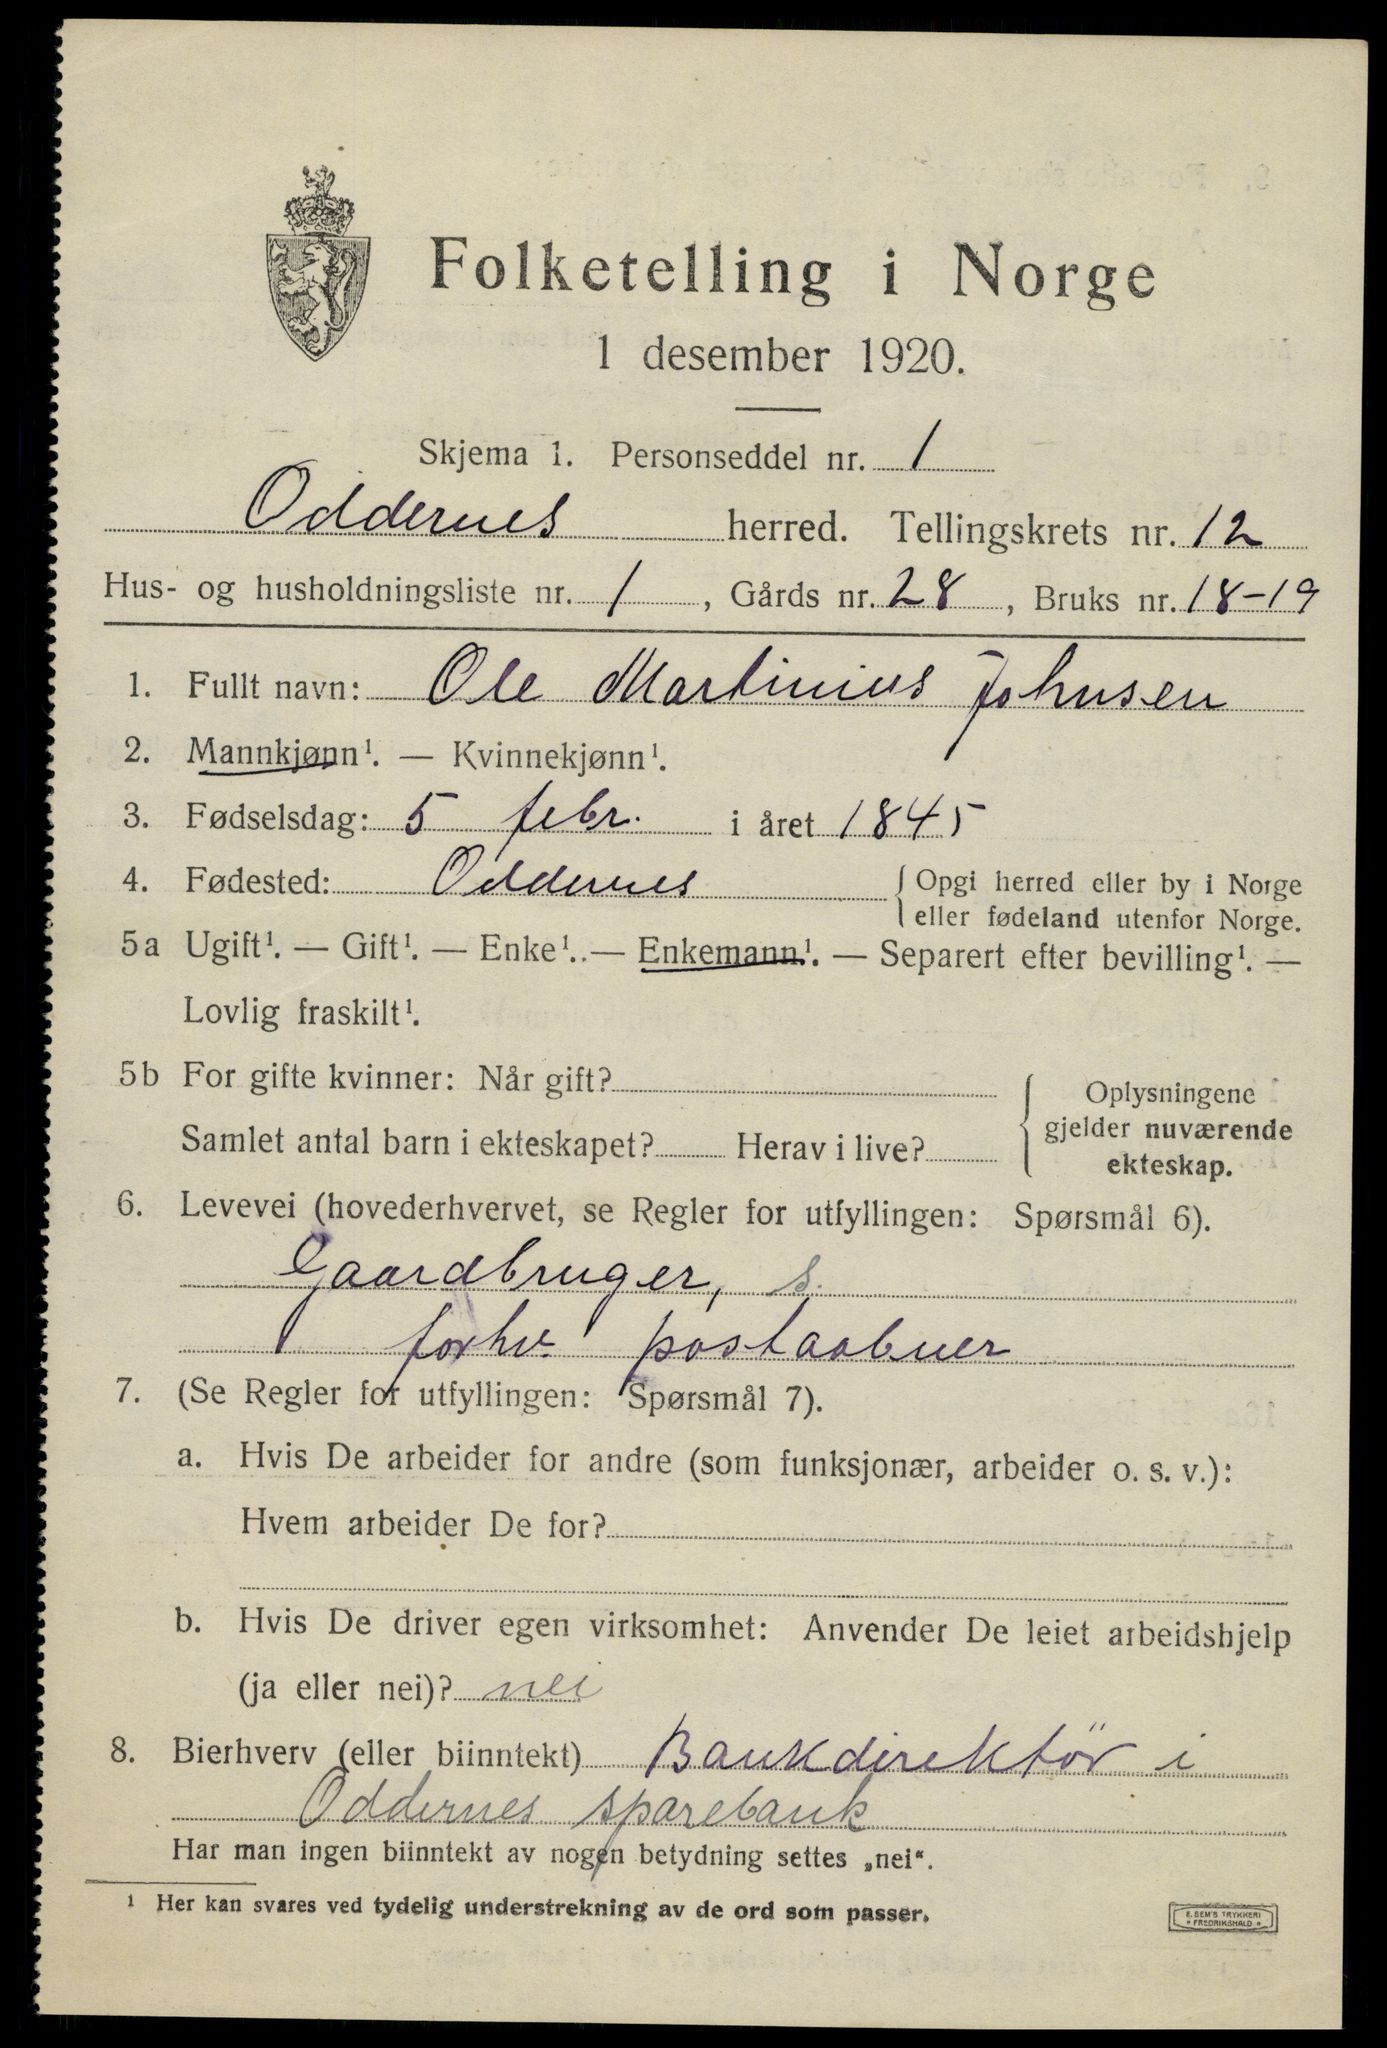 Folketelling i Norge
1 desember 1920.
Skjema 1. Personseddel nr. 1
Oddernes herred. Tellingskrets nr. 12
Hus- og husholdningsliste nr. 1, Gårds nr. 28, Bruks nr. 18-19
1. Fullt navn: Ole Martinius Johnsen
2. Mannkjønn¹. — Kvinnekjønn¹.
3. Fødselsdag: 5 febr. i året 1845
4. Fødested: Oddernes { Opgi herred eller by i Norge
eller fødeland utenfor Norge.
5a Ugift¹. — Gift¹. — Enke¹. — Enkemann¹. — Separert efter bevilling¹. —
Lovlig fraskilt¹.
5b For gifte kvinner: Når gift?
Samlet antal barn i ekteskapet? Herav i live?
{ Oplysningene
gjelder nuværende
ekteskap.
6. Levevei (hovederhvervet, se Regler for utfyllingen: Spørsmål 6).
Gaardbruger, s.
forhv. postaabner
7. (Se Regler for utfyllingen: Spørsmål 7).
a. Hvis De arbeider for andre (som funksjonær, arbeider o. s. v.):
Hvem arbeider De for?
b. Hvis De driver egen virksomhet: Anvender De leiet arbeidshjelp
(ja eller nei)? nei
8. Bierhverv (eller biinntekt) Bankdirektør i
Oddernes sparebank
Har man ingen biinntekt av nogen betydning settes „nei“.
¹ Her kan svares ved tydelig understrekning av de ord som passer.
E. SEM'S TRYKKERI
FREDRIKSHALD